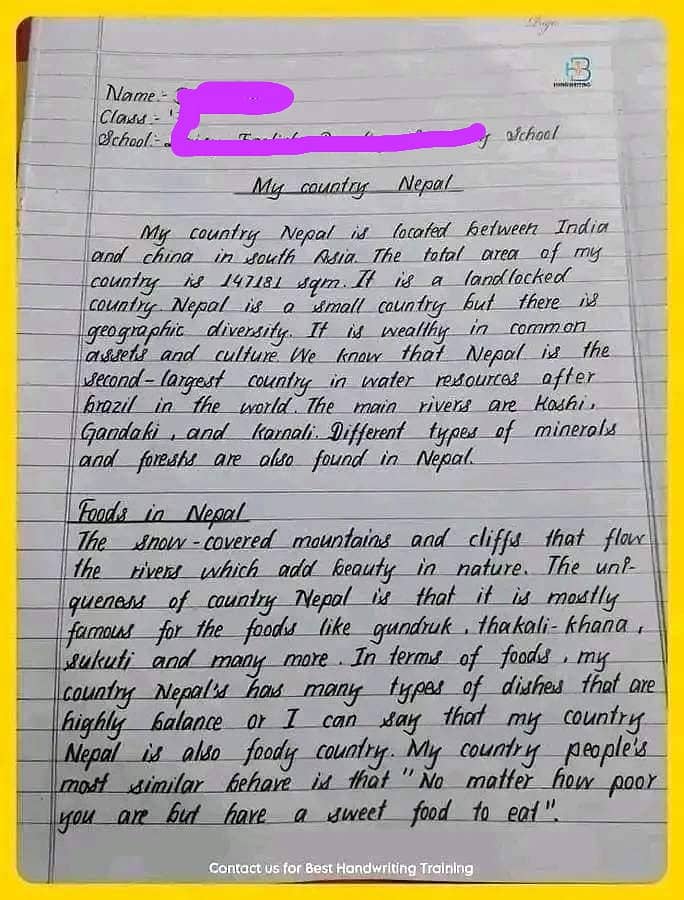 Page
HB
HANDWRITING
Name:-
Class:-
School:- School
My country Nepal
My country Nepal is located between India
and china in south Asia. The total area of my
country is 147181 sqm. It is a landlocked
country. Nepal is a small country but there is
geographic diversity. It is wealthy in common
assets and culture. We know that Nepal is the
second-largest country in water resources after
brazil in the world. The main rivers are Koshi,
Gandaki, and Karnali. Different types of minerals
and forests are also found in Nepal.
Foods in Nepal
The snow-covered mountains and cliffs that flow
the rivers which add beauty in nature. The uni-
queness of country Nepal is that it is mostly
famous for the foods like gundruk, thakali-khana,
sukuti and many more. In terms of foods, my
country Nepal's has many types of dishes that are
highly balance or I can say that my country
Nepal is also foody country. My country people's
most similar behave is that "No matter how poor
you are but have a sweet food to eat".
Contact us for Best Handwriting Training